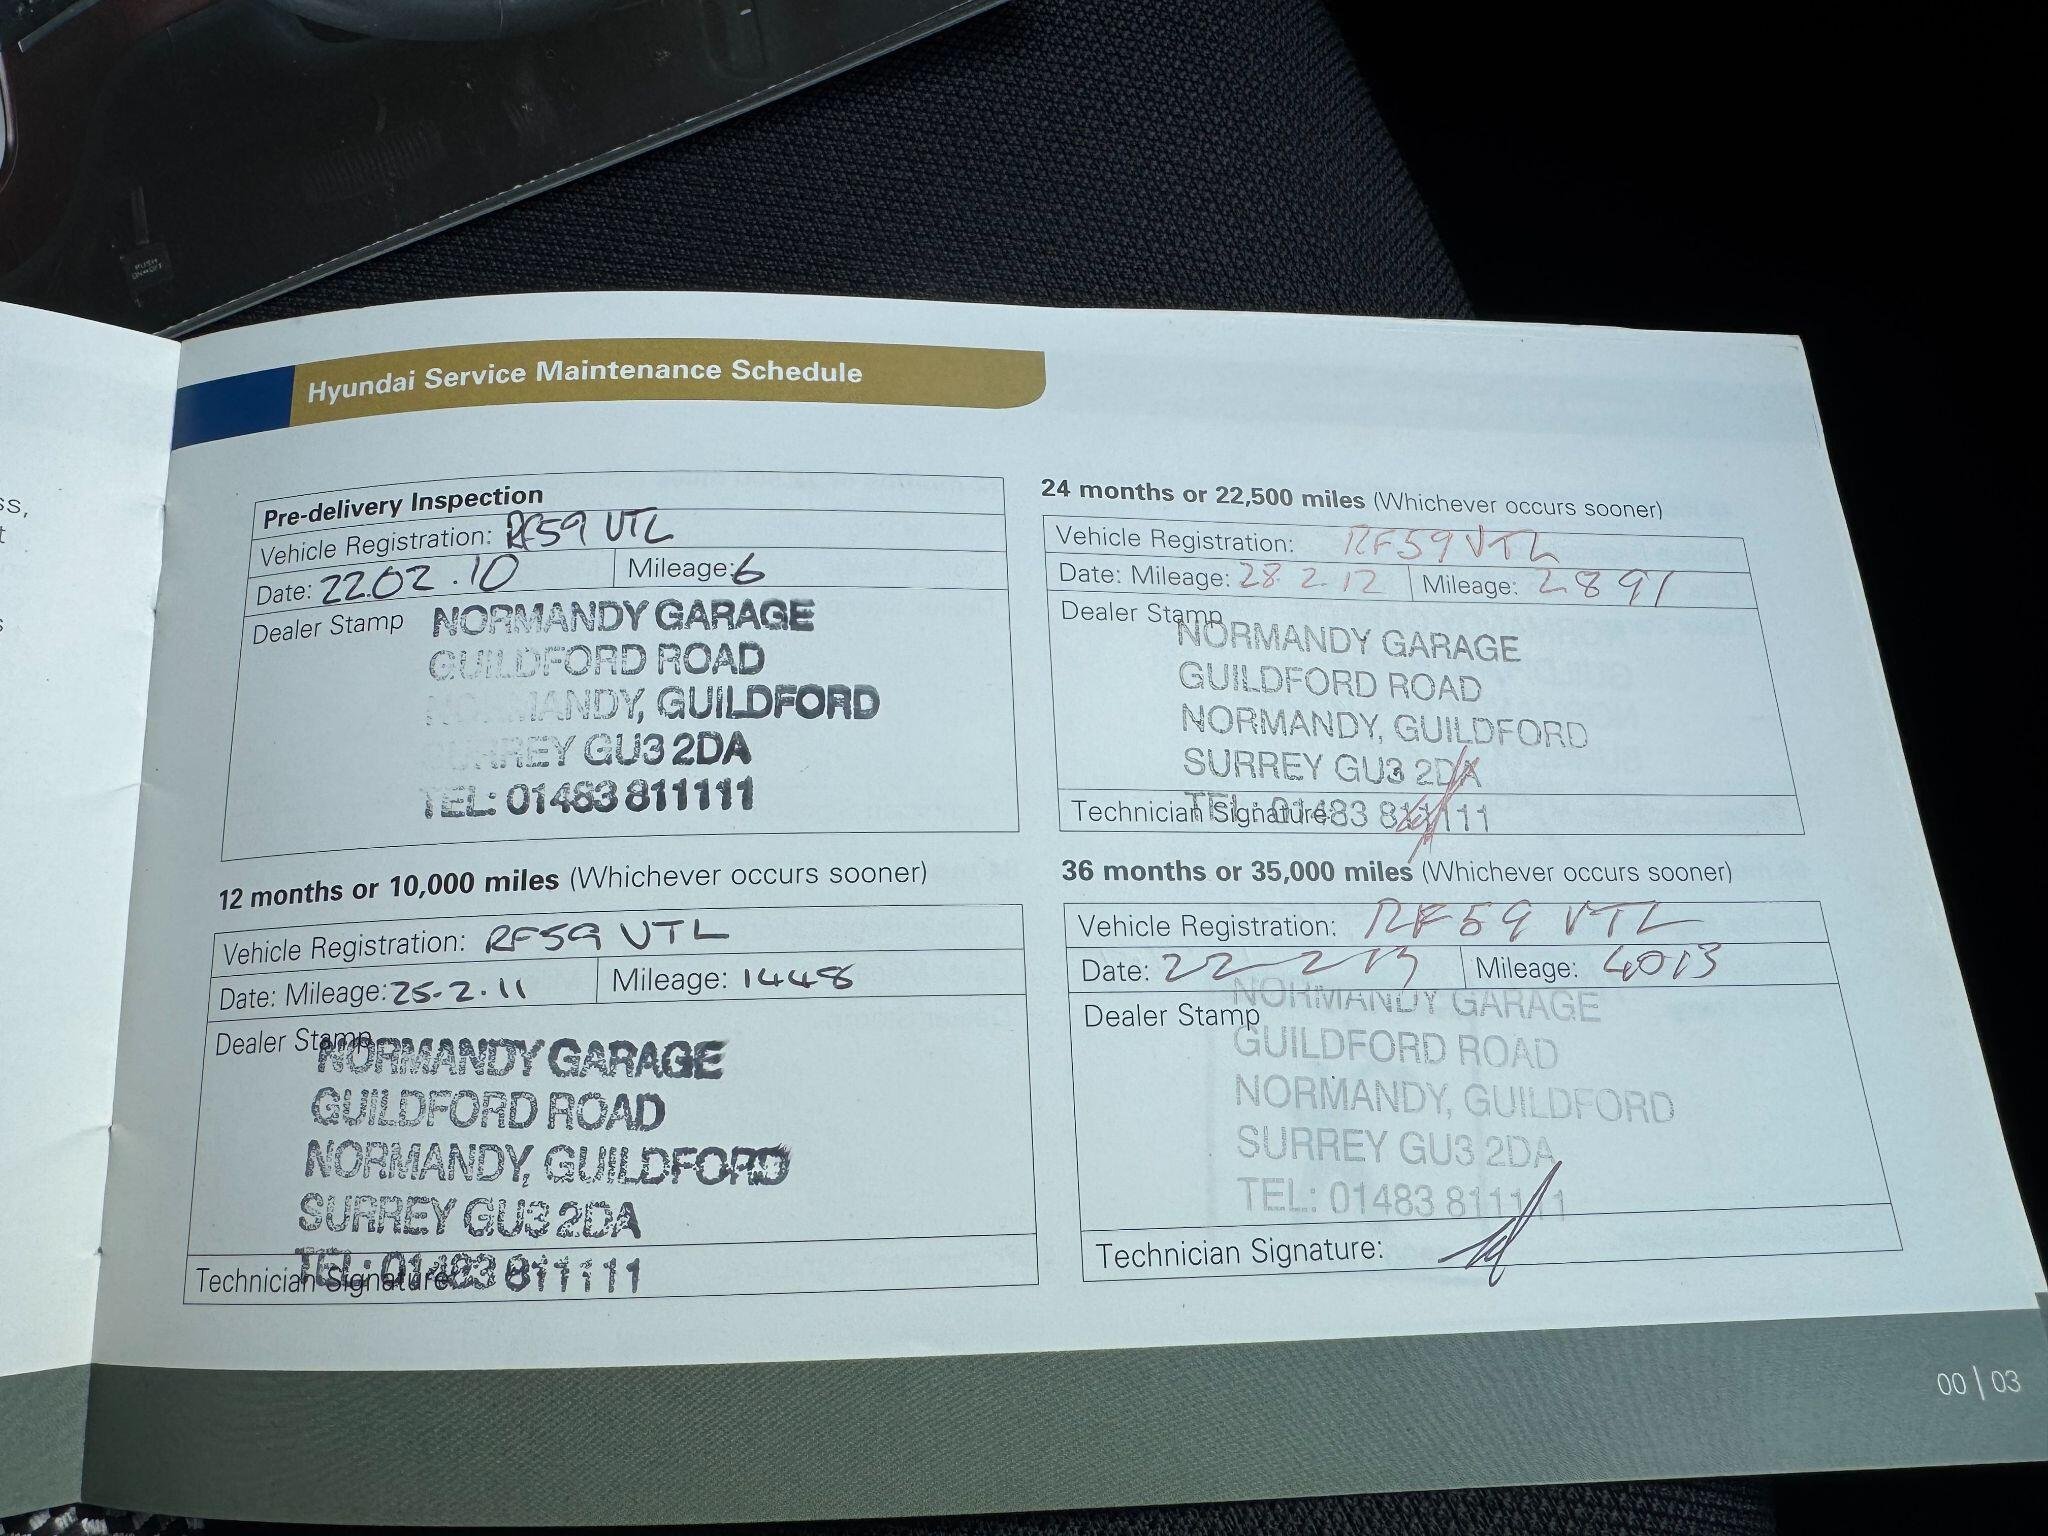 ss,
t
s
PUSH
Hyundai Service Maintenance Schedule
Pre-delivery Inspection
Vehicle Registration: RF59 VTL
Date: 22.02.10 Mileage: 6
Dealer Stamp
NORMANDY GARAGE
GUILDFORD ROAD
NORMANDY, GUILDFORD
SURREY GU3 2DA
TEL: 01483 811111
12 months or 10,000 miles (Whichever occurs sooner)
Vehicle Registration: RF59 VTL
Date: Mileage: 25.2.11 Mileage: 1448
Dealer Stamp
NORMANDY GARAGE
GUILDFORD ROAD
NORMANDY, GUILDFORD
SURREY GU3 2DA
TEL: 01483 811111
Technician Signature:
24 months or 22,500 miles (Whichever occurs sooner)
Vehicle Registration: RF59 VTL
Date: Mileage: 28.2.12 Mileage: 2891
Dealer Stamp
NORMANDY GARAGE
GUILDFORD ROAD
NORMANDY, GUILDFORD
SURREY GU3 2DA
TEL: 01483 811111
Technician Signature:
36 months or 35,000 miles (Whichever occurs sooner)
Vehicle Registration: RF59 VTL
Date: 22-2-13 Mileage: 4013
Dealer Stamp
NORMANDY GARAGE
GUILDFORD ROAD
NORMANDY, GUILDFORD
SURREY GU3 2DA
TEL: 01483 811111
Technician Signature:
00 | 03